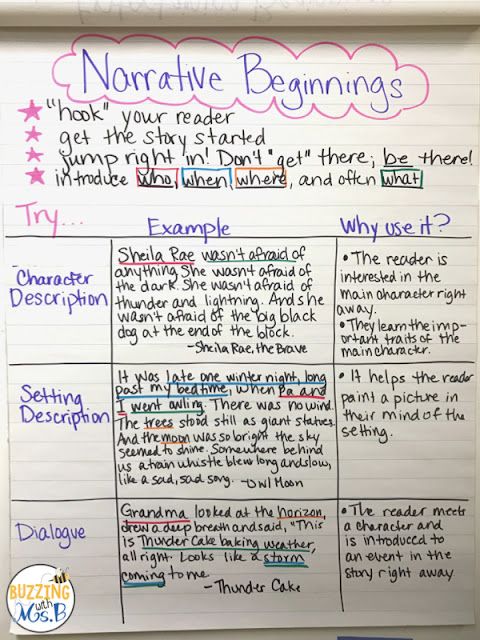 Narrative Beginnings
"hook" your reader
get the story started
jump right in! Don't "get" there; be there!
introduce who, when, where, and often what
Try...
Example
Why use it?
Character
Description
Sheila Rae wasn't afraid of
anything. She wasn't afraid of
the dark. She wasn't afraid of
thunder and lightning. And she
wasn't afraid of the big black
dog at the end of the block.
-Sheila Rae, the Brave
• The reader is
interested in the
main character right
away.
• They learn the imp-
ortant traits of the
main character.
Setting
Description
It was late one winter night, long
past my bedtime, when Pa and
I went owling. There was no wind.
The trees stood still as giant statues.
And the moon was so bright the sky
seemed to shine. Somewhere behind
us a train whistle blew long and low,
like a sad, sad song. -Owl Moon
• It helps the reader
paint a picture in
their mind of the
setting.
Dialogue
Grandma looked at the horizon,
drew a deep breath and said, "This
is Thunder Cake baking weather,
all right. Looks like a storm
coming to me.
- Thunder Cake
• The reader meets
a character and
is introduced to
an event in the
story right away
BUZZING
with
Ms. B